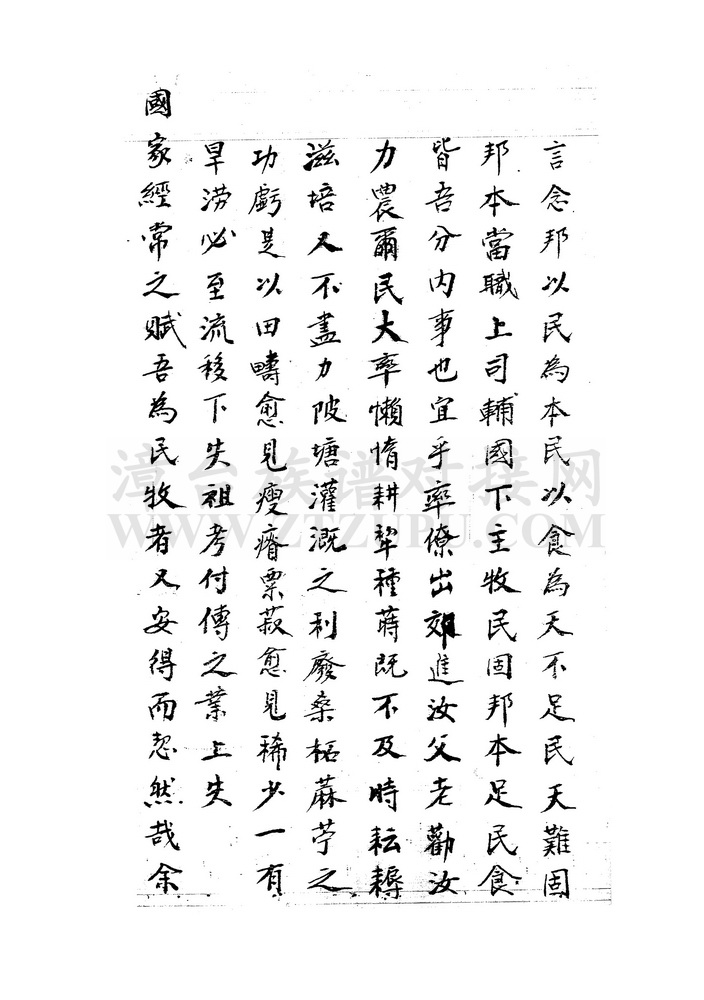 言念邦以民為本民以食為天不足民天難固
邦本當職上司輔國下主牧民固邦本足民食
皆吾分内事也宜乎率僚出郊進汝父老勸汝
力農爾民大率懶惰耕犂種蒔既不及時耘耨
滋培又不盡力陂塘灌溉之利廢桑柘蔴苧之
功虧是以田疇愈見瘦瘠粟菽愈見稀少一有
旱澇必至流移下失祖考付傳之業上失
國家經常之賦吾為民牧者又安得而恝然哉余
漳台族谱对接网
WWW.ZTZUPU.COM